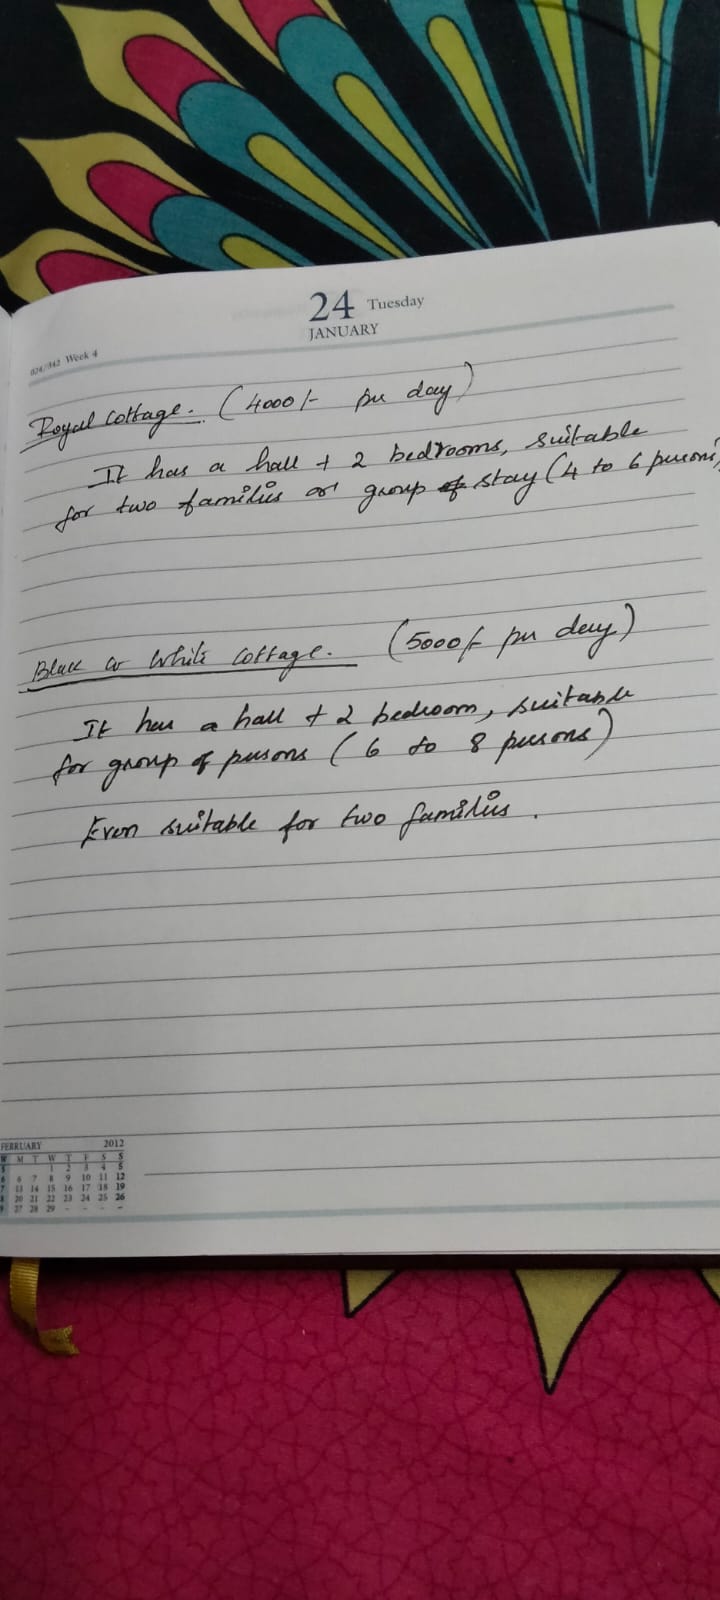 24 Tuesday
JANUARY
024/342 Week 4
Royal Cottage. (4000/- per day)
It has a hall + 2 bedrooms, suitable
for two families or group of stay (4 to 6 persons)
Black or White Cottage. (5000/- per day)
It has a hall + 2 bedroom, suitable
for group of persons (6 to 8 persons)
Even suitable for two families.
FEBRUARY 2012
W M T W T F S S
5 1 2 3 4 5
6 6 7 8 9 10 11 12
7 13 14 15 16 17 18 19
8 20 21 22 23 24 25 26
9 27 28 29 - - - -